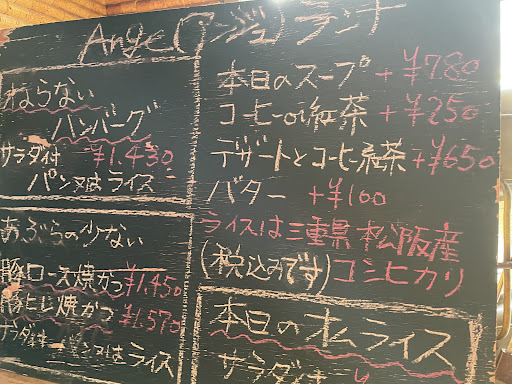 Ange(アンジュ)ランチ
ねらない
ハンバーグ
サラダ付 ¥1,430
パン又はライス
あぶらの少ない
豚ロース焼かつ ¥1,450
豚ヒレ焼かつ ¥1,570
サラダ付 パン又はライス
本日のスープ +¥780
コーヒーor紅茶 +¥250
デザートとコーヒー紅茶 +¥650
バター +¥100
ライスは三重県松阪産
(税込みです)コシヒカリ
本日のオムライス
サラダ付 ¥